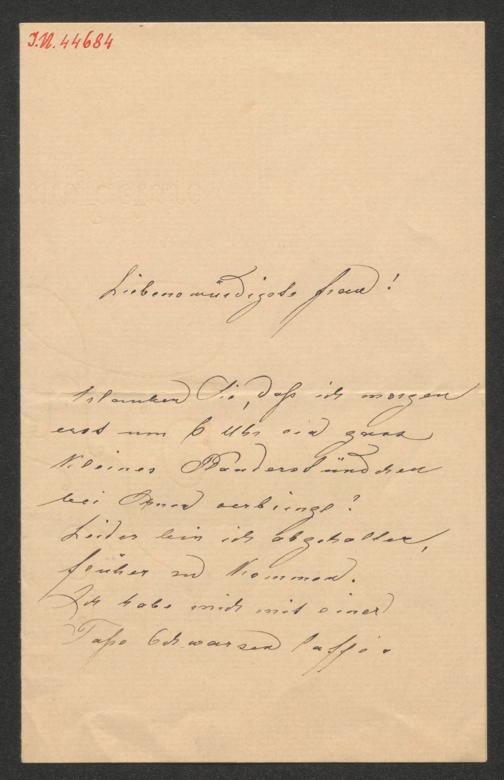 I.N. 44684
Liebenswürdigste Frau!
Erlauben Sie, daß ich morgen
erst um 6 Uhr ein ganz
kleines Plauderstündchen
bei Ihnen verbringe?
Leider bin ich abgehalten,
früher zu kommen.
Ich habe mich mit einer
Taße schwarzen Caffe.